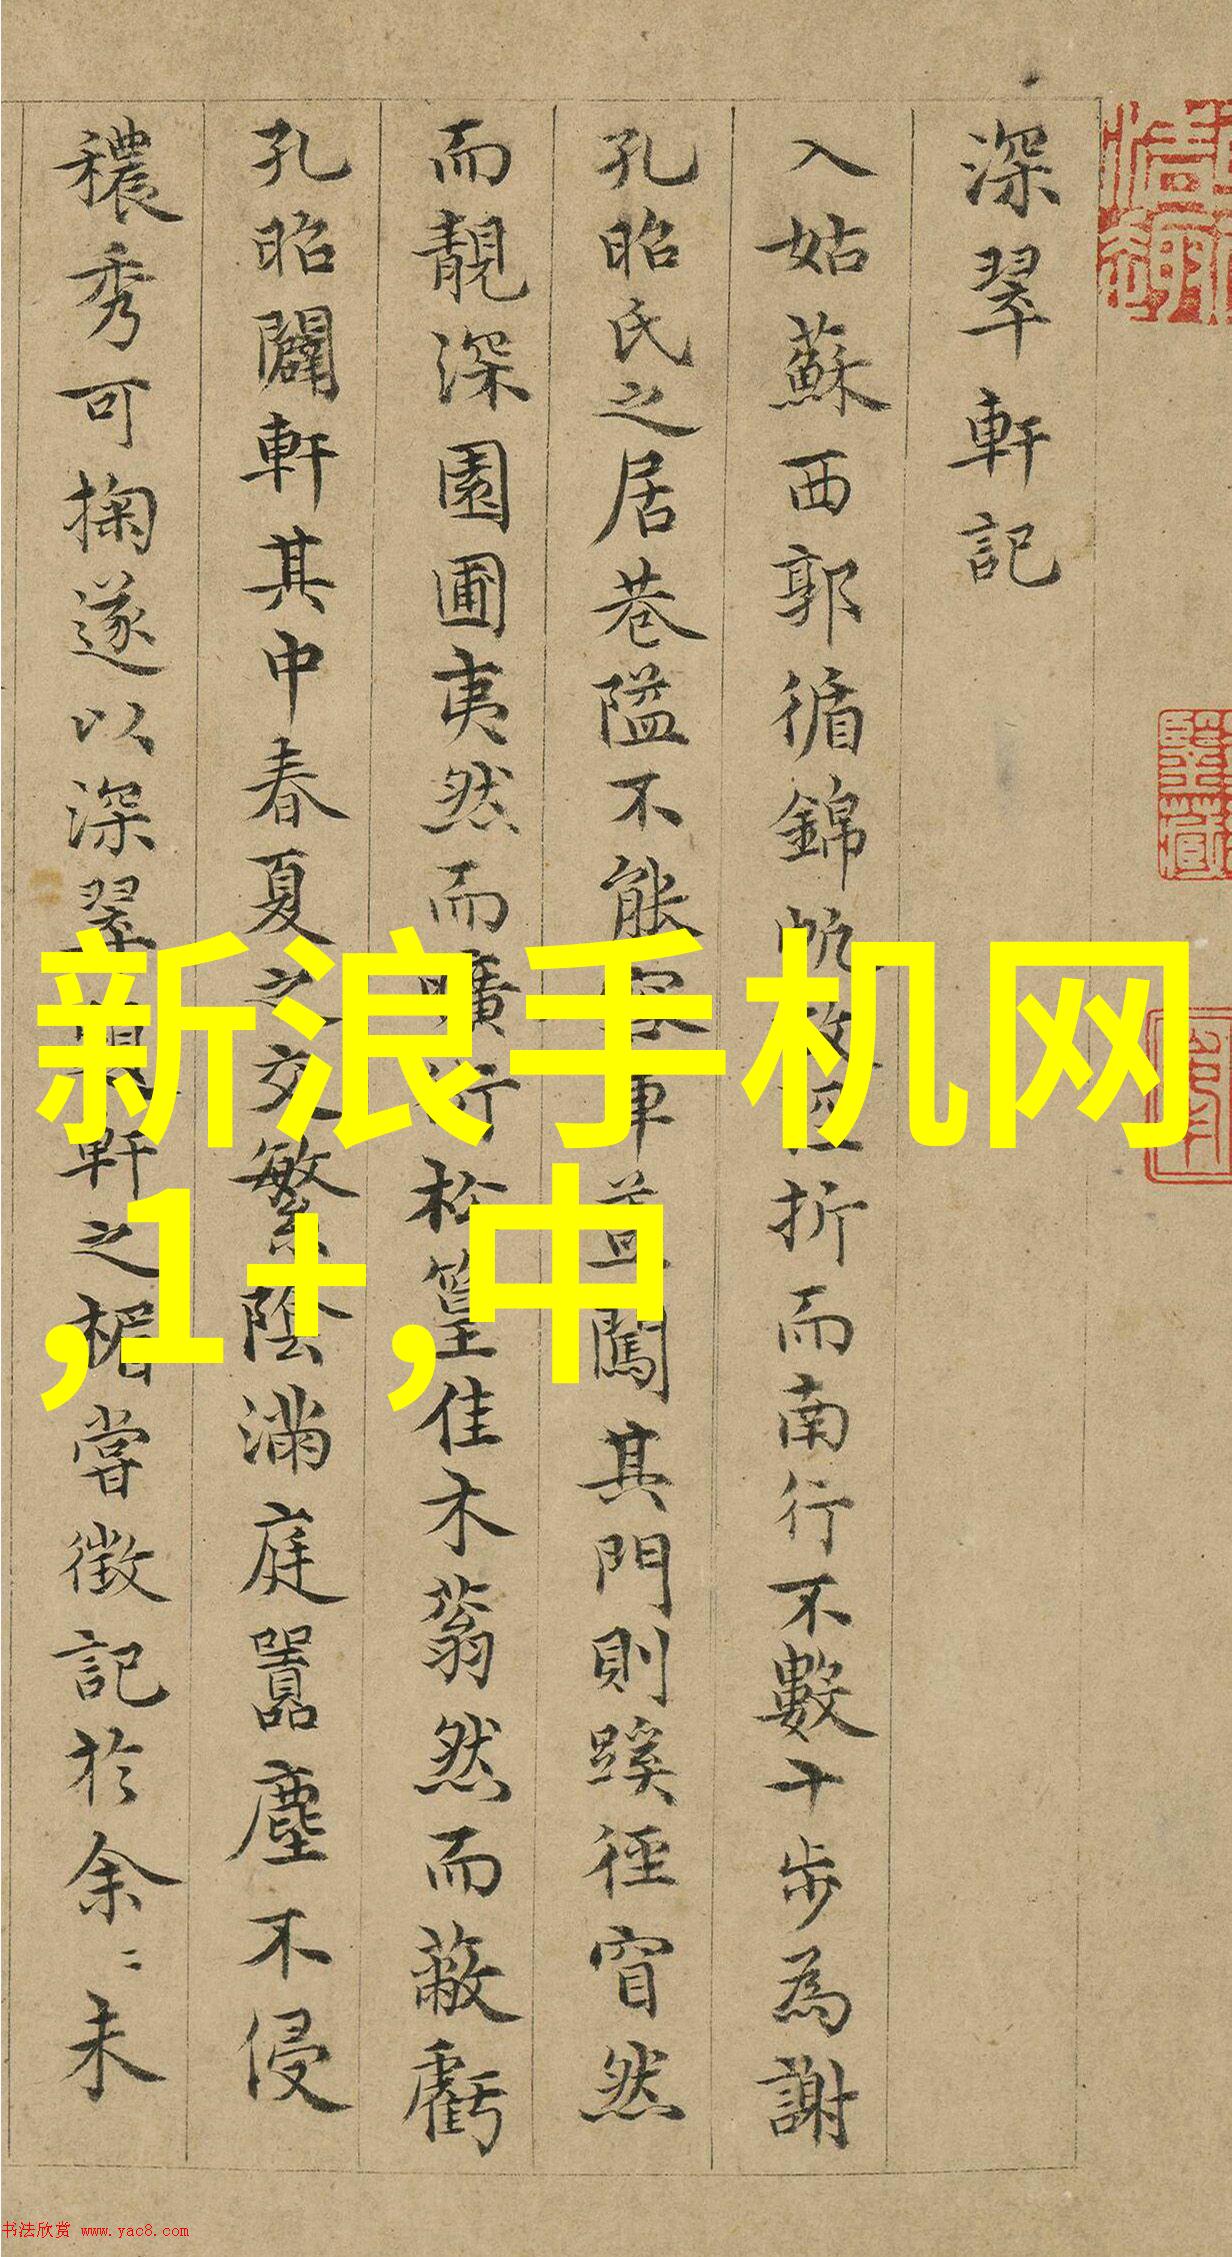 深翠軒記
入姑蘇西郭循錦帆折而南行不數十步為謝
孔昭氏之居巷隘不能車蓋闖其門則蹊徑窅然
而靚深園圃夷然而曠衍松篁佳木蓊然而蔽虧
孔昭闢軒其中春夏之交繁陰滿庭囂塵不侵
穠秀可掬遂以深翠軒之楣嘗徵記於余〻未
新浪手机网
,1+,中
书法欣赏 www.yac8.com